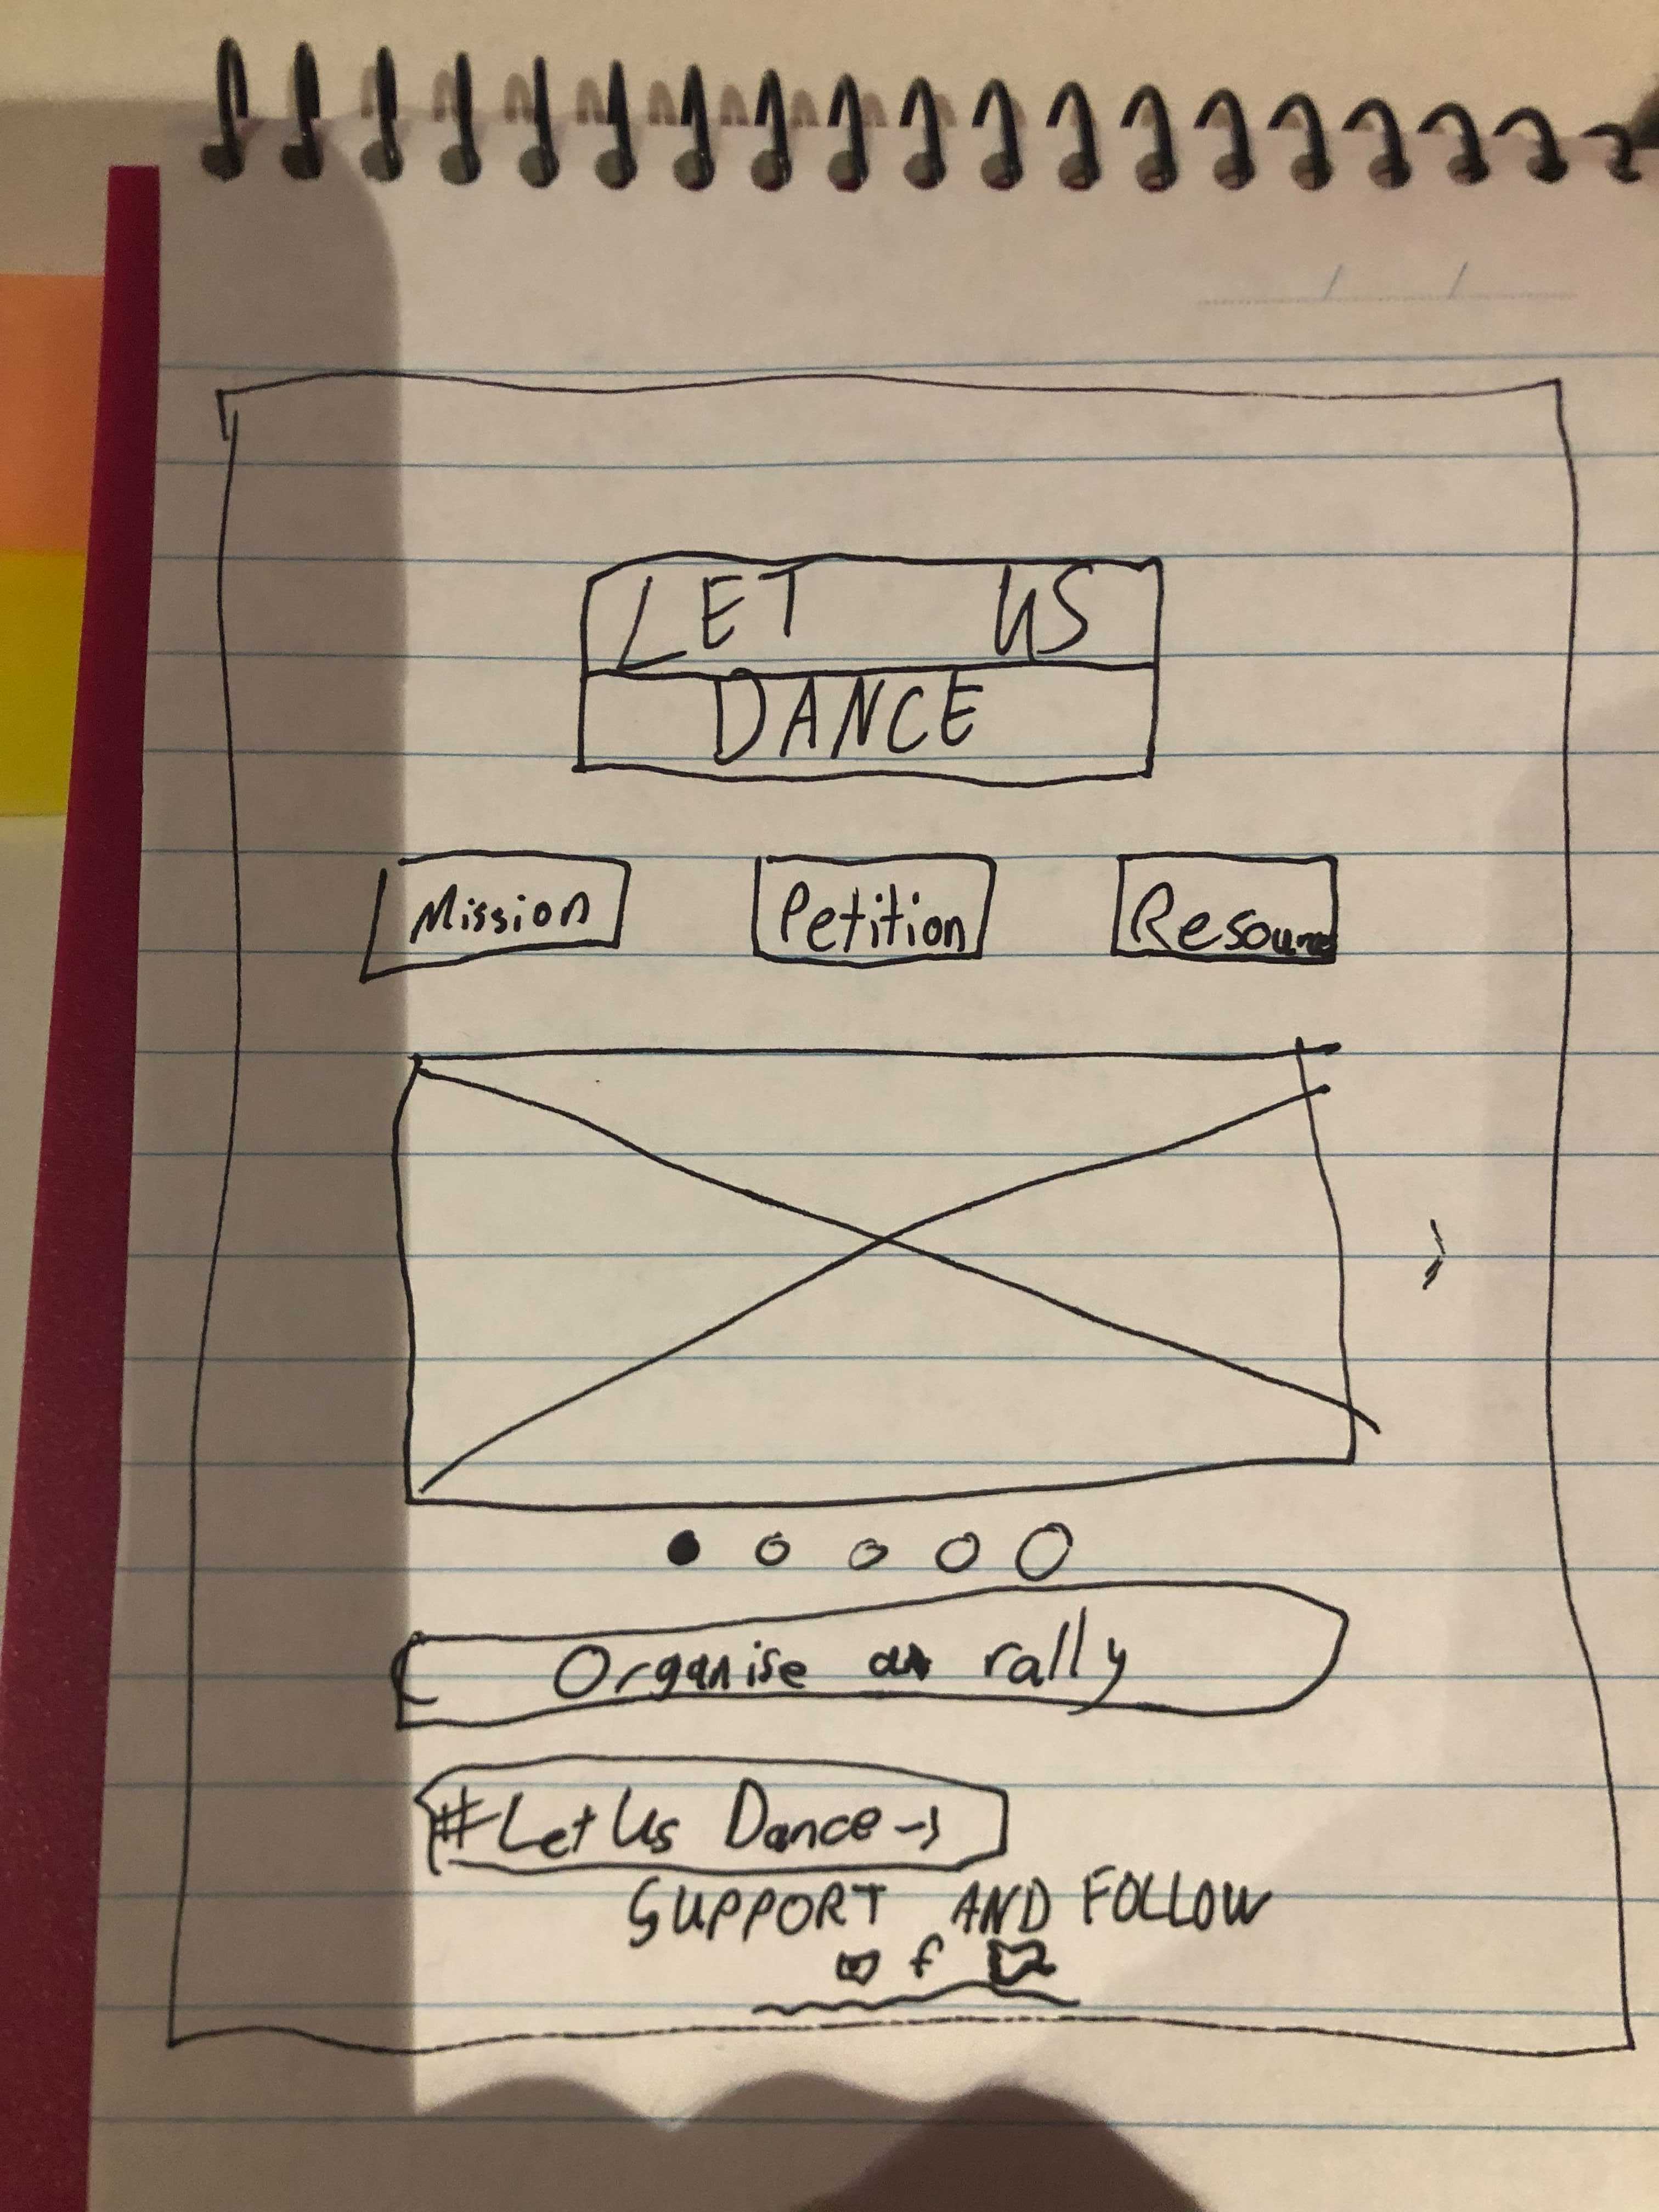 LET US
DANCE
Mission Petition Resource
Organise a rally
#Let Us Dance →
SUPPORT AND FOLLOW
f